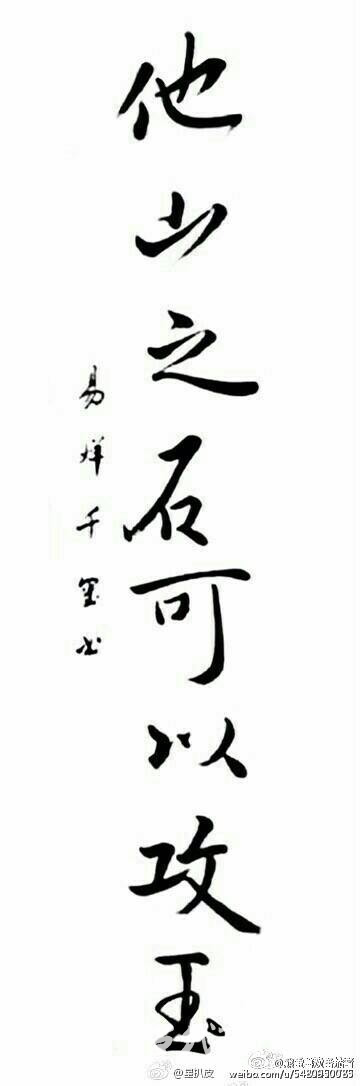 他山之石可以攻玉
易烊千玺书
@星扒皮